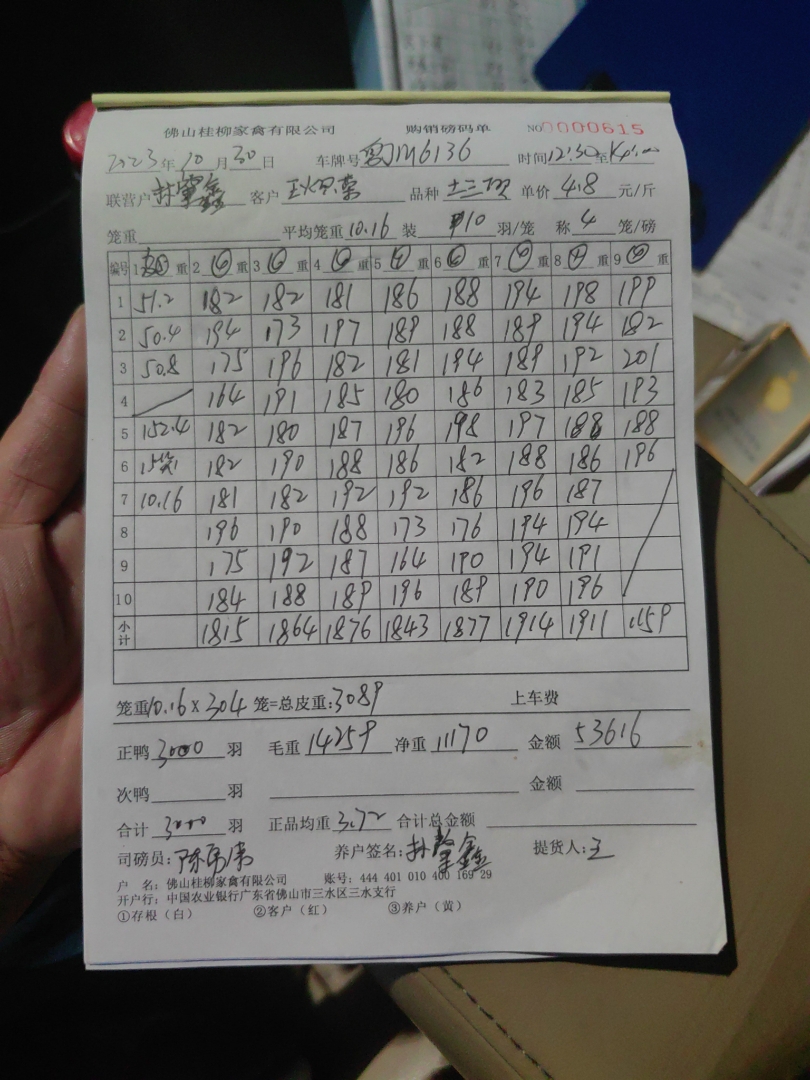 佛山桂柳家禽有限公司 购销磅码单 NO 0000615
2023年10月30日 车牌号 M6136 时间12:30至
联营户 鑫 客户 王 荣 品种 单价 4.8 元/斤
笼重 平均笼重 10.16 装 10 羽/笼 称 4 笼/磅
编号 1 重 2 重 3 重 4 重 5 重 6 重 7 重 8 重 9 重
1 51.2 182 182 181 186 188 194 198 199
2 50.4 194 173 197 189 188 189 194 182
3 50.8 175 196 182 181 194 189 192 201
4 164 191 185 180 186 183 185 193
5 152.4 182 180 187 196 198 197 188 188
6 15笼 182 190 188 186 182 188 186 196
7 10.16 181 182 192 192 186 196 187
8 196 190 188 173 176 194 194
9 175 192 187 164 190 194 191
10 184 188 189 196 189 190 196
小计 1815 1864 1876 1843 1877 1914 1911 1159
笼重 10.16 x 304 笼=总皮重: 3089 上车费
正鸭 3000 羽 毛重 14259 净重 11170 金额 53616
次鸭 羽 金额
合计 3000 羽 正品均重 3.72 合计总金额
司磅员: 陈 养户签名: 鑫 提货人: 王
户 名: 佛山桂柳家禽有限公司 账号: 444 401 010 400 169 29
开户行: 中国农业银行广东省佛山市三水区三水支行
①存根(白) ②客户(红) ③养户(黄)